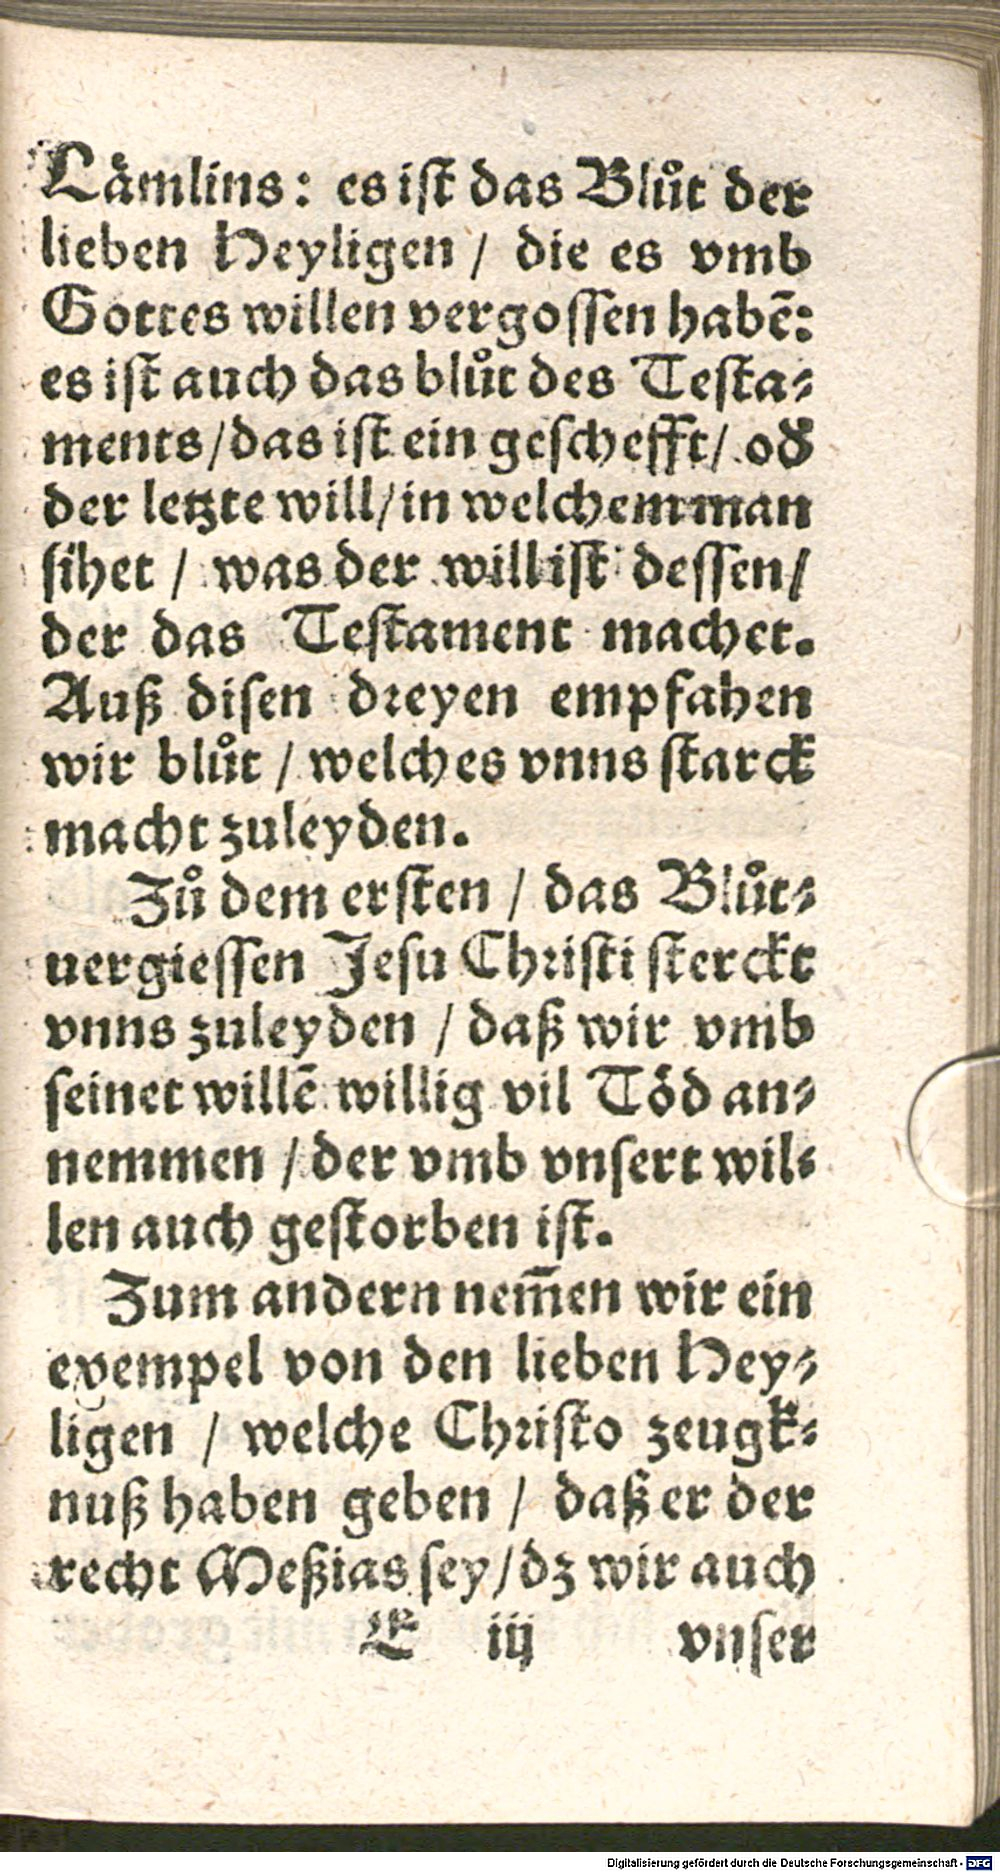 Lämlins: es iſt das Blůt der
lieben Heyligen / die es vmb
Gottes willen vergoſſen habē:
es iſt auch das blůt des Teſta⸗
ments/das iſt ein geſchefft/ od̓
der letzte will/in welchem man
ſihet / was der will iſt deſſen/
der das Teſtament machet.
Auß diſen dꝛeyen empfahen
wir blůt / welches vnns ſtarck
macht zuleyden.
Zů dem erſten / das Blůt⸗
uergieſſen Jeſu Chꝛiſti ſterckt
vnns zuleyden / daß wir vmb
ſeinet willē willig vil Töd an⸗
nemmen / der vmb vnſert wil⸗
len auch geſtorben iſt.
Zum andern nem̄en wir ein
exempel von den lieben Hey⸗
ligen / welche Chꝛiſto zeugk⸗
nuß haben geben / daß er der
recht Meßias ſey/dz wir auch
E iij vnſer
Digitalisierung gefördert durch die Deutsche Forschungsgemeinschaft - DFG